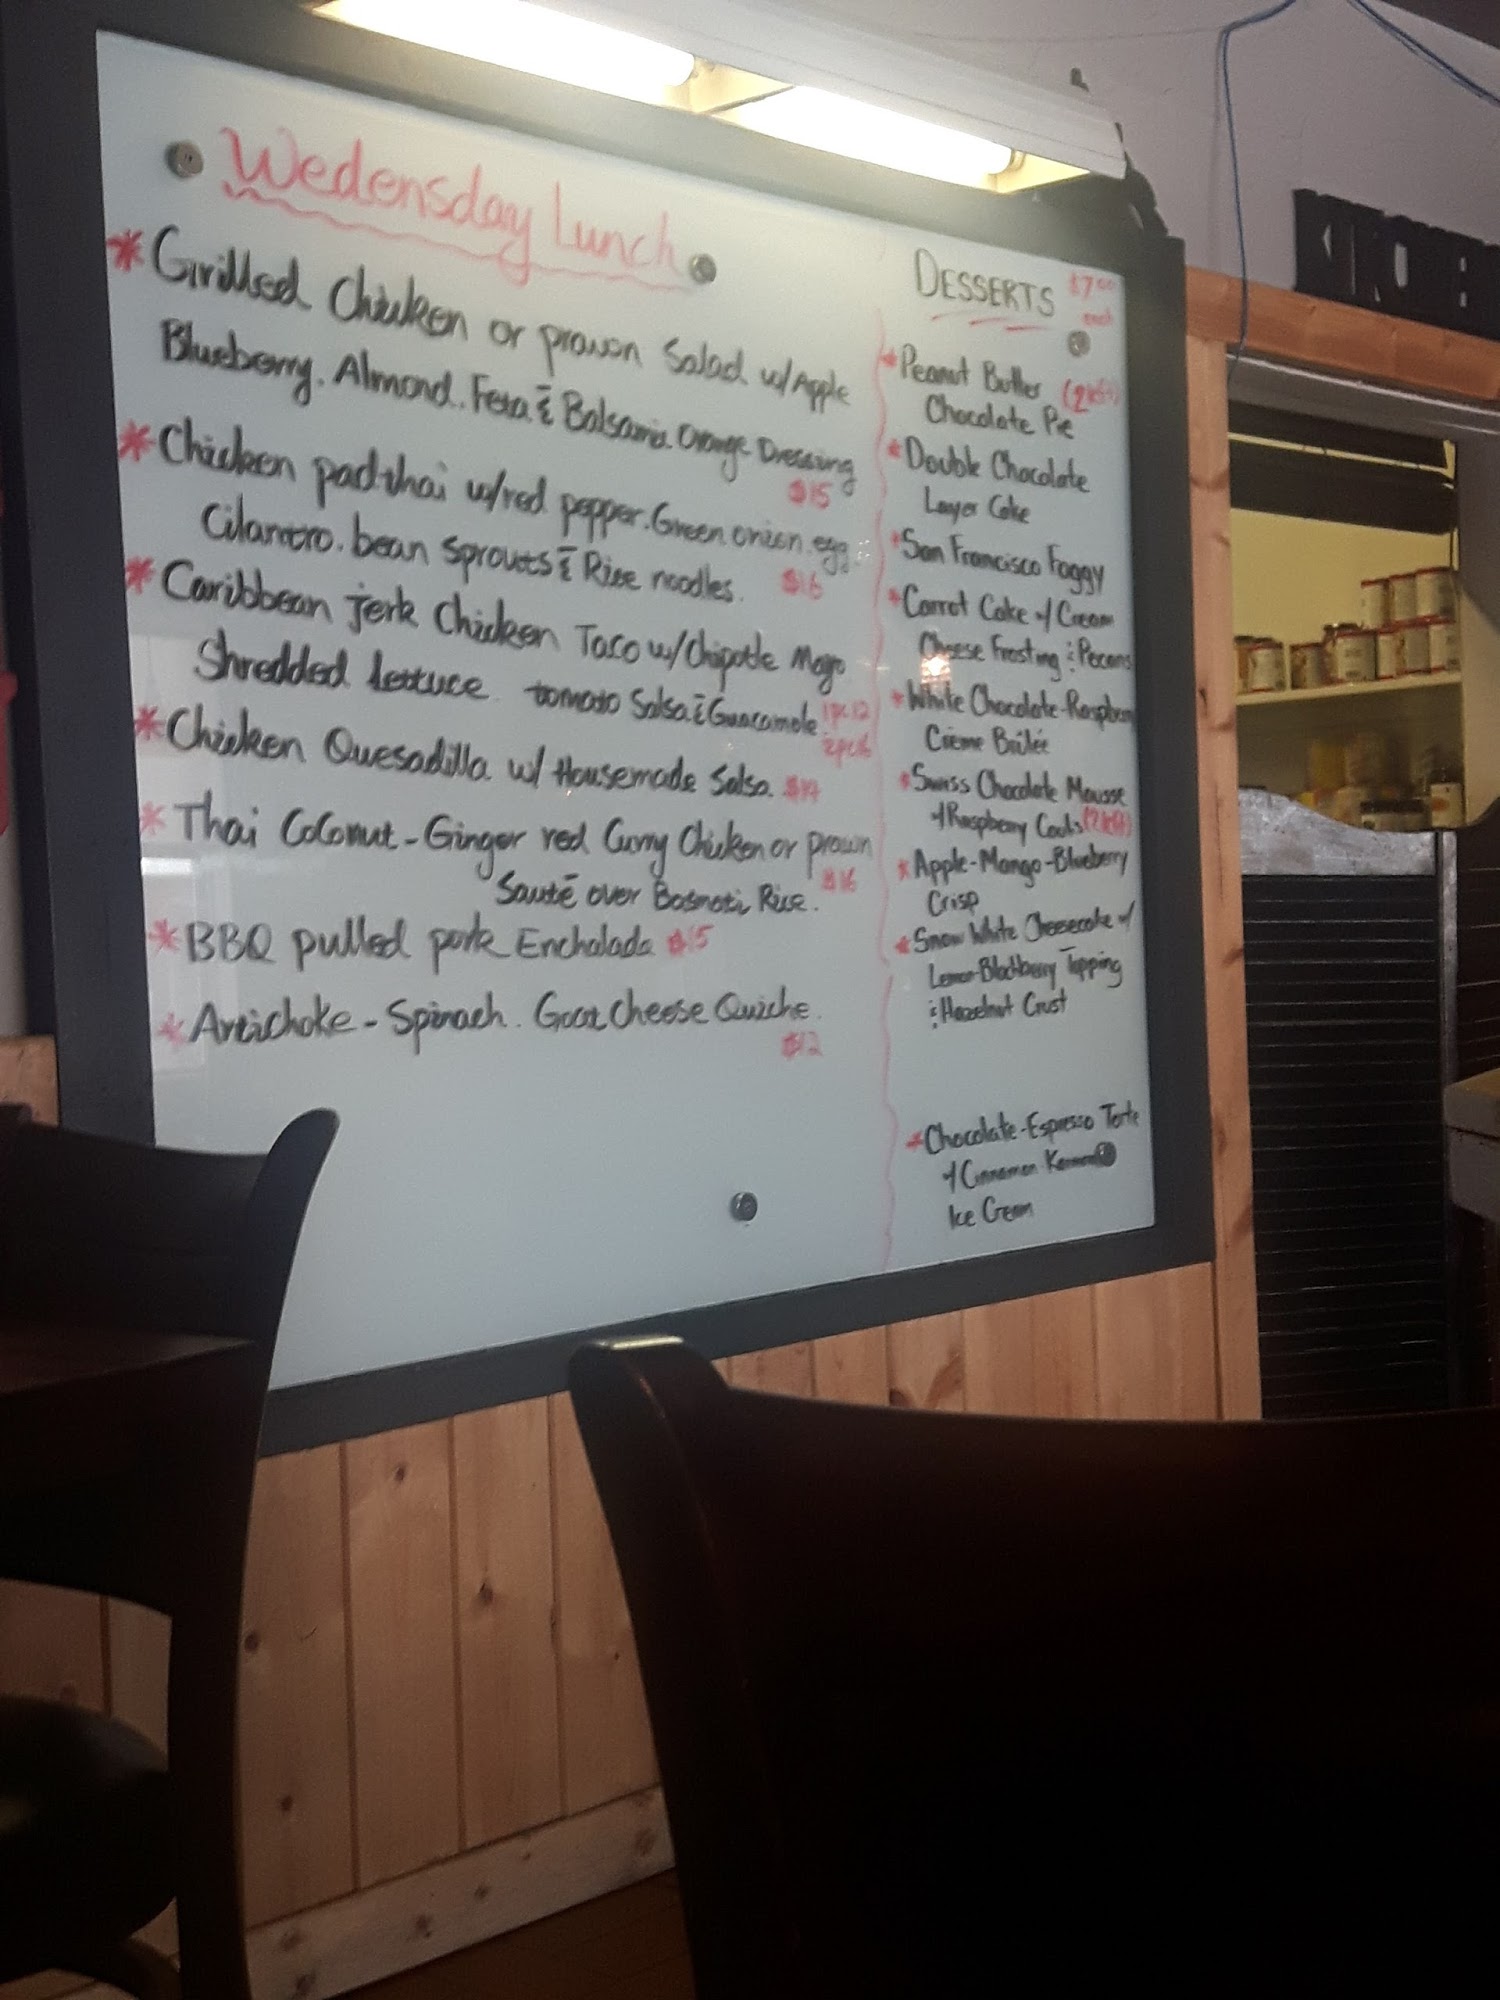 Wedensday Lunch
* Grilled Chicken or prawn Salad w/ Apple
Blueberry. Almond. Feta & Balsamic Orange Dressing
$15
* Chicken pad-thai w/ red pepper. Green onion. egg
Cilantro. bean sprouts & Rice noodles. $16
* Caribbean jerk Chicken Taco w/ Chipotle Mayo
Shredded lettuce. tomato Salsa & Guacamole. 1pc 12
2pc 16
* Chicken Quesadilla w/ Housemade Salsa. $14
* Thai CoConut - Ginger red Curry Chicken or prawn
Sauté over Basmati Rice. $16
* BBQ pulled pork Enchalada $15
* Artichoke - Spinach. Goat Cheese Quiche.
$12
DESSERTS $7.00
each
* Peanut Butter (2 left)
Chocolate Pie
* Double Chocolate
Layer Cake
* San Francisco Foggy
* Carrot Cake w/ Cream
Cheese Frosting & Pecans
* White Chocolate-Raspberry
Crème Brûlée
* Swiss Chocolate Mousse
w/ Raspberry Coulis (2 left)
* Apple-Mango-Blueberry
Crisp
* Snow White Cheesecake w/
Lemon-Blackberry Topping
& Hazelnut Crust
* Chocolate-Espresso Torte
w/ Cinnamon
Ice Cream